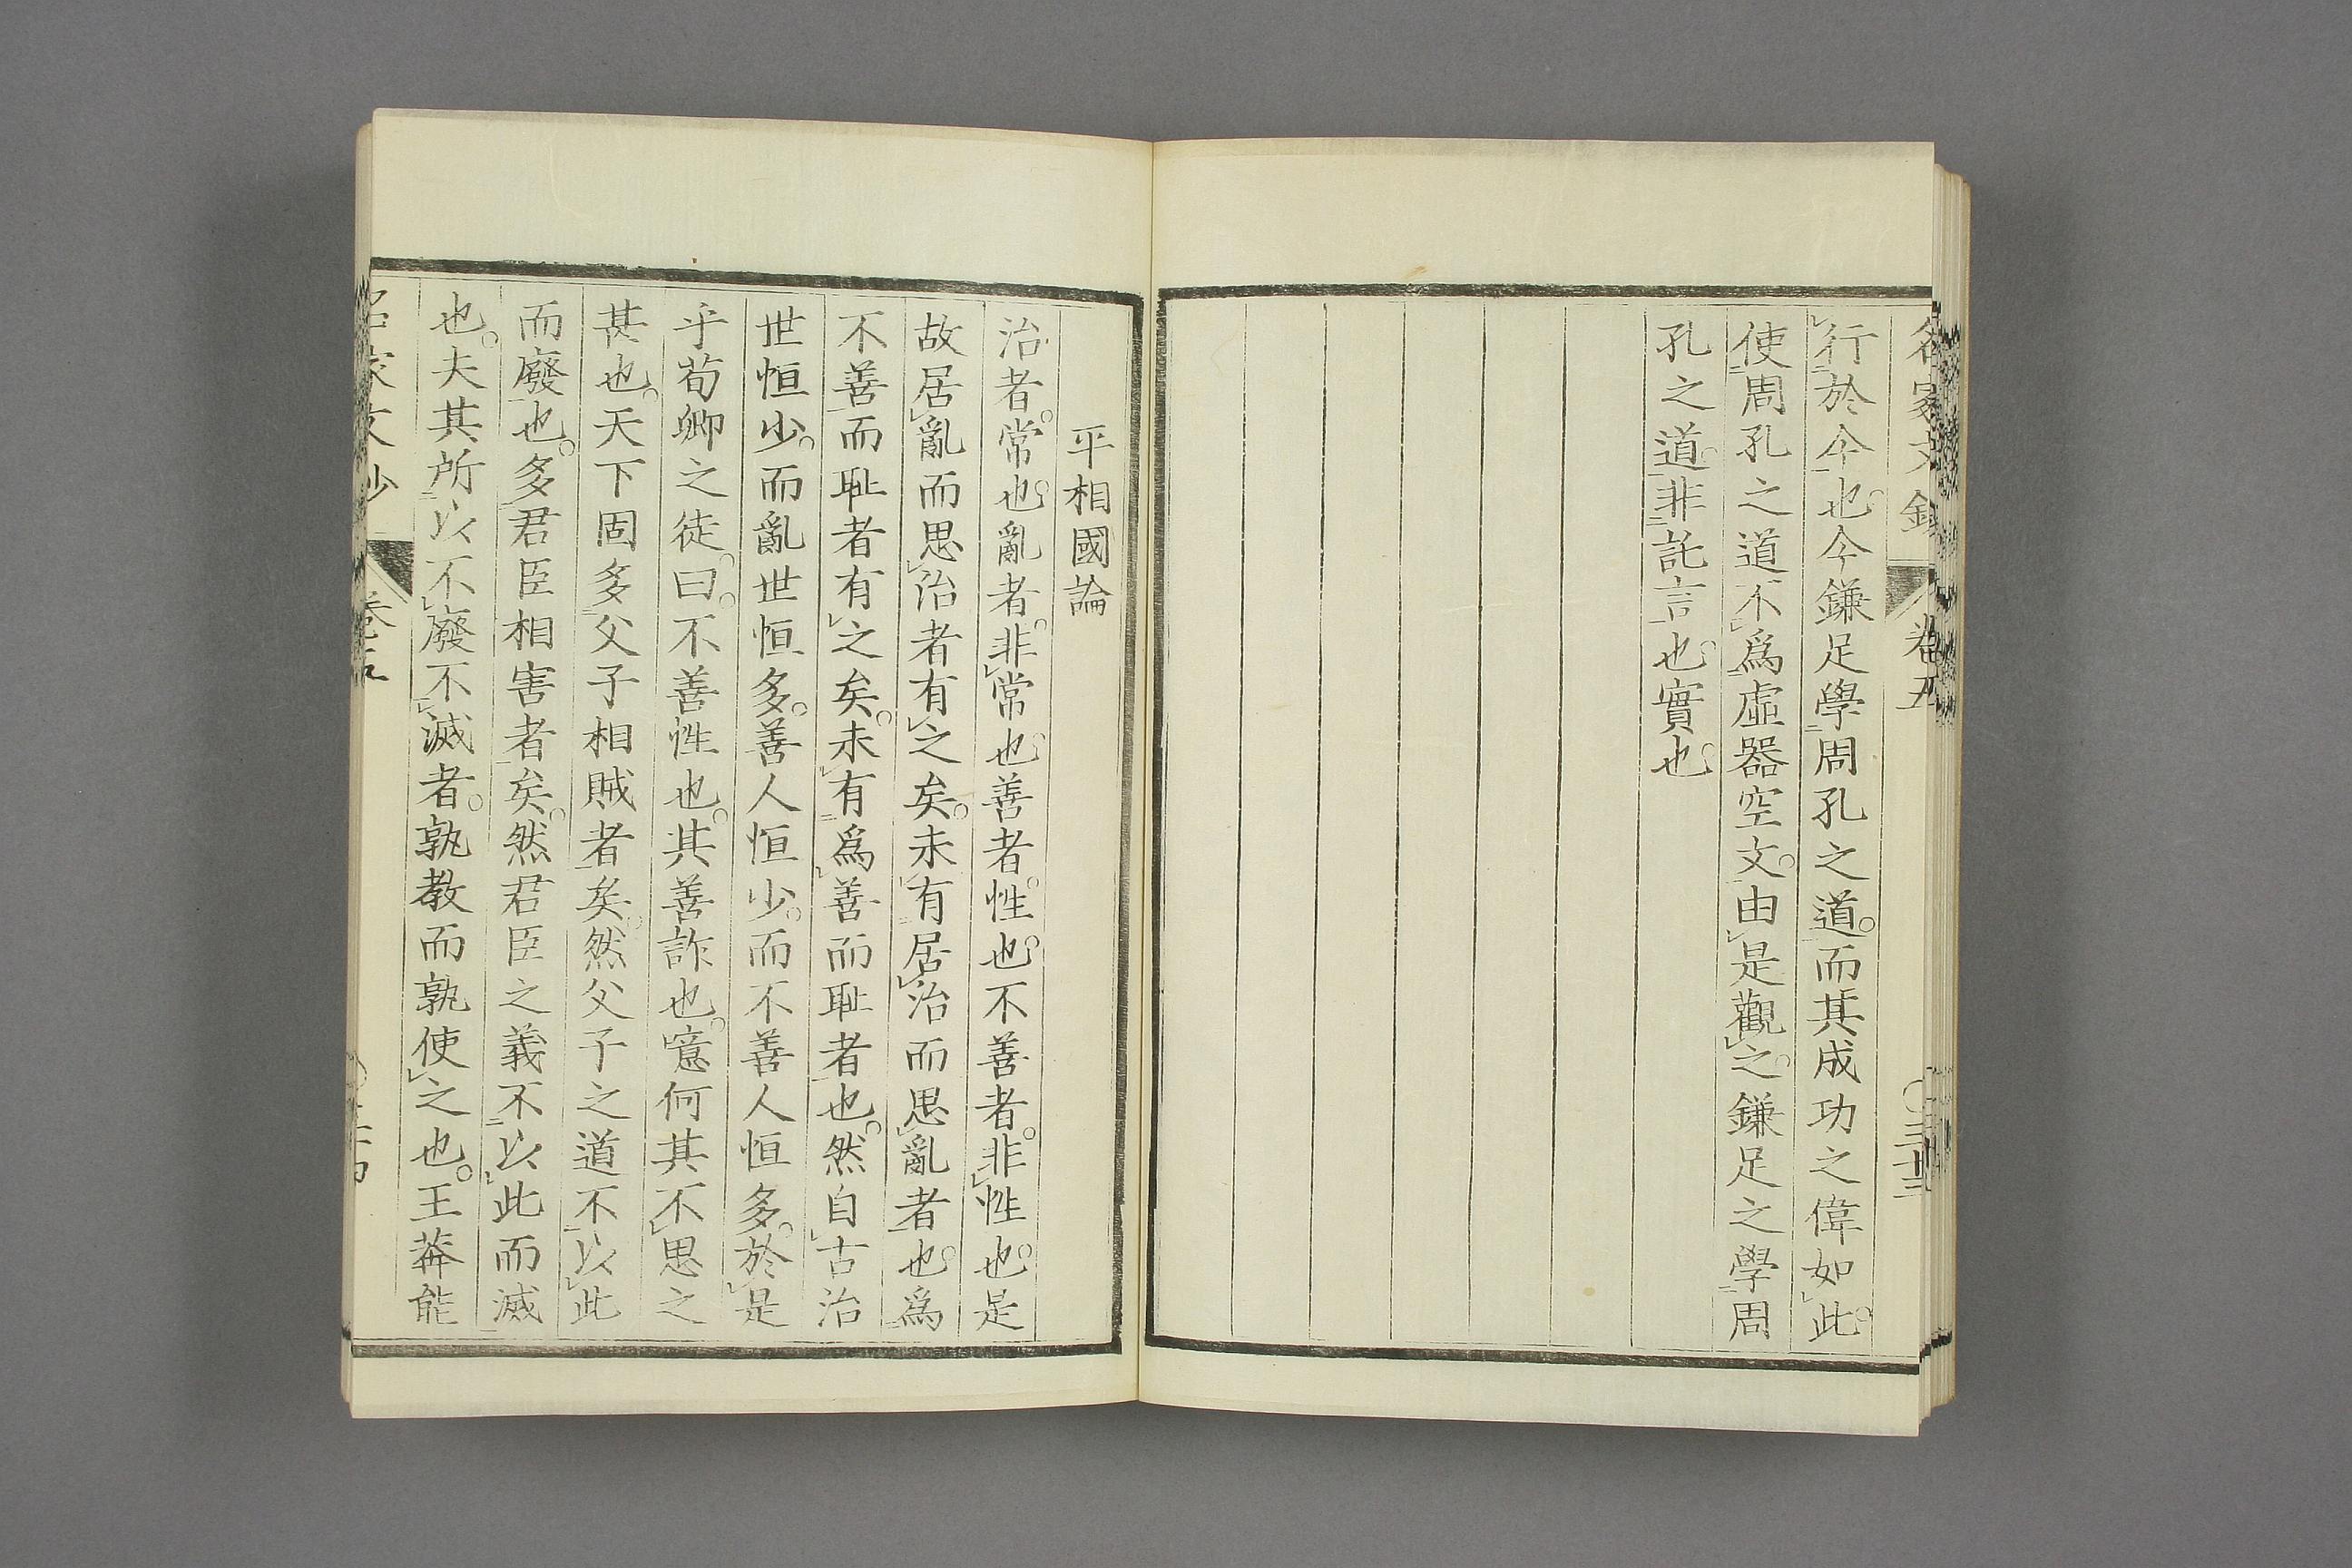 行於今也。今鎌足學周孔之道。而其成功之偉如此。
使周孔之道不爲虛器空文。由是觀之。鎌足之學周
孔之道。非託言也。實也。
平相國論
治者。常也。亂者。非常也。善者。性也。不善者。非性也。是
故居亂而思治者有之矣。未有居治而思亂者也。爲
不善而耻者有之矣。未有爲善而耻者也。然自古治
世恒少。而亂世恒多。善人恒少。而不善人恒多。於是
乎荀卿之徒。曰。不善性也。其善詐也。噫何其不思之
甚也。天下固多父子相賊者矣。然父子之道不以此
而廢也。多君臣相害者矣。然君臣之義不以此而滅
也。夫其所以不廢不滅者。孰教而孰使之也。王莽能